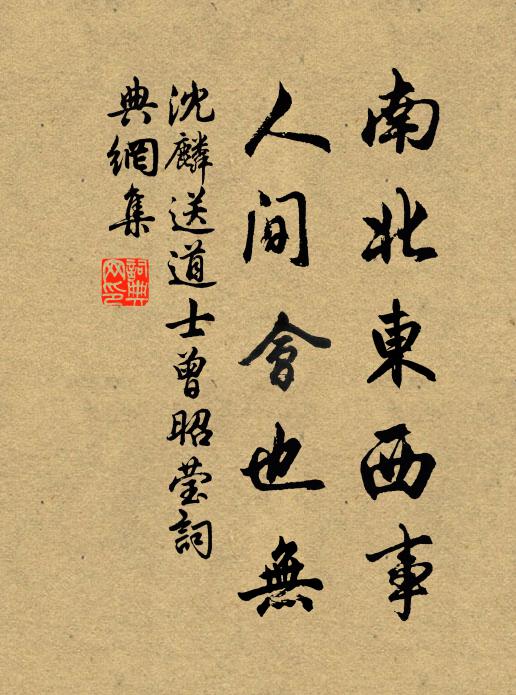 南北東西事
人間會也無
沈麟送道士曾昭瑩詞
典網集
詞典
网印